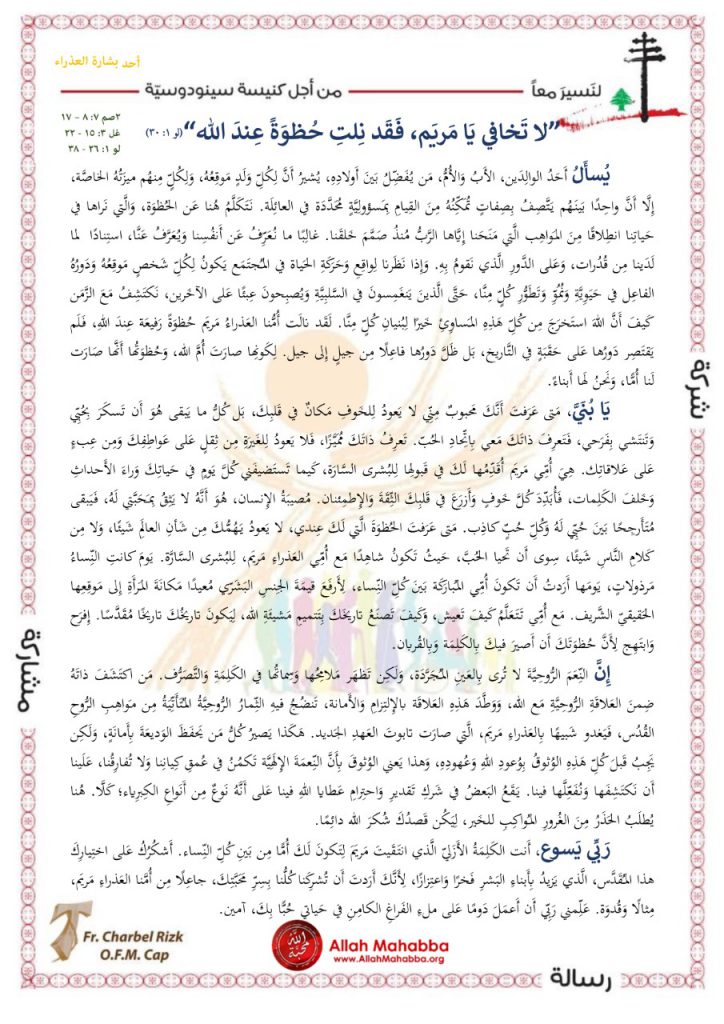 أحد بشارة العذراء
لنَسيرَ معاً
من أجل كنيسة سينودوسيّة
٢صم ٧: ٨ - ١٧
غل ٣: ١٥ - ٢٢
لو ١: ٢٦ - ٣٨
”لا تَخافي يَا مَريَم، فَقَد نِلتِ حُظوَةً عِندَ الله“ (لو ١: ٣٠)
يُسأَلُ أحَدُ الوالِدَين، الأبُ وَالأُمُّ، مَن يُفَضِّلُ بَينَ أولادِهِ، يُشيرُ أنَّ لِكُلِّ وَلَدٍ مَوقِعُهُ، وَلِكُلٍّ مِنهُم ميزَتُه الخاصَّة،
إلَّا أنَّ واحِدًا بَينَهُم يَتَّصِفُ بِصِفاتٍ تُمَكِّنُهُ مِنَ القِيامِ بِمَسؤولِيَّةٍ مُحَدَّدَة في العائِلَة. نَتَكَلَّمُ هُنا عَن الحُظوَة، وَالَّتي نَراها في
حَياتِنا انطلاقًا مِنَ المَواهِب الَّتي مَنَحَنا إيَّاها الرَّبُّ مُنذُ صَمَّمَ خَلقَنا. غالِبًا ما نُعَرِّفُ عَن أنفُسِنا وَيُعَرَّفُ عَنَّا، استِنادًا لما
لَدَينا مِن قُدُرات، وَعَلى الدَّورِ الَّذي نَقومُ بِهِ. وَإذا نَظَرنا لِواقِعِ وَحَرَكَةِ الحَياة في المُجتَمَع يَكونُ لِكُلِّ شَخصٍ مَوقِعُهُ وَدَورُهُ
الفاعِل في حَيَوِيَّةِ وَنُمُوِّ وَتَطَوُّرِ كُلٍّ مِنَّا، حَتَّى الَّذينَ يَنغَمِسونَ في السَّلبِيَّةِ وَيُصبِحونَ عِبئًا عَلى الآخَرين، نَكتَشِفُ مَعَ الزَّمَن
كَيفَ أنَّ اللهَ استَخرَجَ مِن كُلِّ هَذِهِ المَساوِئِ خَيرًا لِبُنيانِ كُلٍّ مِنَّا. لَقَد نالَت أُمُّنا العَذراءُ مَريَم حُظوَةً رَفيعَة عِندَ اللهِ، فَلَم
يَقتَصِر دَورُها عَلى حَقبَةٍ في التَّاريخ، بَل ظَلَّ دَورُها فاعِلًا مِن جيلٍ إلى جيل. لِكَونِها صارَت أُمَّ الله، وَحُظوَتُها أنَّها صَارَت
لَنا أُمًّا، وَنَحنُ لَها أبناءً.
يَا بُنَيَّ، مَتى عَرَفتَ أنَّكَ مَحبوبٌ مِنِّي لا يَعودُ لِلخَوفِ مَكانٌ في قَلبِكَ، بَل كُلُّ ما يَبقى هُوَ أن تَسكَرَ بِحُبِّي
وَتَنتَشي بِفَرَحي، فَتَعرِفَ ذاتَكَ مَعي بِاتِّحادِ الحُبّ. تَعرِفُ ذاتَكَ مُمَيَّزًا، فَلا يَعودُ لِلغَيرَةِ مِن ثِقَلٍ عَلى عَواطِفِكَ وَمِن عِبءٍ
عَلى عَلاقاتِكَ. هِيَ أُمِّي مَريَم أُقَدِّمُها لَكَ في قَبولِها لِلبُشرى السَّارَة، كَيما تَستَضيفَني كُلَّ يَومٍ في حَياتِكَ وَراءَ الأحداثِ
وَخَلفَ الكَلِمات، فَأُبَدِّدَ كُلَّ خَوفٍ وَأزرَعَ في قَلبِكَ الثِّقَةَ وَالإطمِئنان. مُصيبَةُ الإنسان، هُوَ أنَّهُ لا يَثِقُ بِمَحَبَّتي لَهُ، فَيَبقى
مُتَأرجِحًا بَينَ حُبِّي لَهُ وَكُلِّ حُبٍّ كاذِب. مَتى عَرَفتَ الحُظوَةَ الَّتي لَكَ عِندي، لا يَعودُ يَهُمُّكَ مِن شَأنِ العالَمِ شَيئًا، وَلا مِن
كَلامِ النَّاسِ شَيئًا، سِوى أن تَحيا الحُبَّ، حَيثُ تَكونُ شاهِدًا مَع أُمِّي العَذراءِ مَريَم، لِلبُشرى السَّارَّة. يَومَ كانتِ النِّساءُ
مَرذولاتٍ، يَومَها أرَدتُ أن تَكونَ أُمِّي المُبارَكَة بَينَ كُلِّ النِّساء، لِأرفَعَ قيمَةَ الجِنسِ البَشَرِيّ مُعيدًا مَكانَةَ المَرأةِ إلى مَوقِعِها
الحَقيقيِّ الشَّريف. مَع أُمِّي تَتَعَلَّمُ كَيفَ تَعيش، وَكَيفَ تَصنَعُ تاريخَكَ بِتَتميمِ مَشيئَةِ الله، لِيَكونَ تاريخُكَ تاريخًا مُقَدَّسًا. إفرَح
وَابتَهِج لأنَّ حُظوَتَكَ أن أصيرَ فيكَ بِالكَلِمَة وَبِالقُربان.
إنَّ النِّعَمَ الرُّوحِيَّةَ لا تُرى بِالعَينِ المُجَرَّدَة، وَلَكِن تَظهَر مَلامِحُها وَسِماتُها في الكَلِمَةِ وَالتَّصَرُّف. مَن اكتَشَفَ ذاتَهُ
ضِمنَ العَلاقَةِ الرُّوحِيَّةِ مَع الله، وَوَطَّدَ هَذِهِ العَلاقَة بالإلتِزامِ وَالأمانَة، تَنضُجُ فيهِ الثِّمارُ الرُّوحِيَّةُ المُتَأتِّيَةُ مِن مَواهِبِ الرُّوحِ
القُدُس، فَيَغدو شَبيهًا بِالعَذراءِ مَريَم، الَّتي صارَت تابوتَ العَهدِ الجَديد. هَكَذا يَصيرُ كُلُّ مَن يَحفَظَ الوَديعَةَ بِأمانَةٍ، وَلَكِن
يَجِبُ قَبلَ كُلِّ هَذِهِ الوُثوقُ بِوُعودِ اللهِ وَعُهودِهِ، وَهذا يَعني الوُثوقَ بِأنَّ النِّعمَةَ الإلَهِيَّةَ تَكمُنُ في عُمقِ كِيانِنا وَلا تُفارِقُنا، عَلَينا
أن نَكتَشِفَها وَنُفَعِّلَها فينا. يَقَعُ البَعضُ في شَركِ تَقديرِ وَاحتِرامِ عَطايا اللهِ فينا عَلى أنَّهُ نَوعٌ مِن أنواعِ الكِبرِياء؛ كَلَّا. هُنا
يُطلَبُ الحَذَرُ مِنَ الغُرورِ المُواكِبِ لِلخَير، لِيَكُن قَصدُكَ شُكرَ الله دائِمًا.
رَبِّي يَسوع، أنت الكَلِمَةُ الأزَلِيُّ الَّذي انتَقَيتَ مَريَمَ لِتَكونَ لَكَ أُمًّا مِن بَينِ كُلِّ النِّساء. أشكُرُكَ عَلى اختِيارِكَ
هذا المُقَدَّس، الَّذي يَزيدُ بِأبناءِ البَشَرِ فَخرًا وَاعتِزازًا، لِأنَّكَ أرَدتَ أن تُشرِكَنا كُلُّنا بِسِرِّ مَحَبَّتِكَ، جاعِلًا مِن أُمِّنا العَذراءِ مَريَم،
مِثالًا وَقُدوَة. عَلِّمني رَبِّي أن أعمَلَ دَومًا عَلى مِلءِ الفَراغِ الكامِنِ في حَياتي حُبًّا بِكَ، آمين.
شركة
مشاركة
رسالة
Fr. Charbel Rizk
O.F.M. Cap
الله محبّة
Allah Mahabba
www.AllahMahabba.org